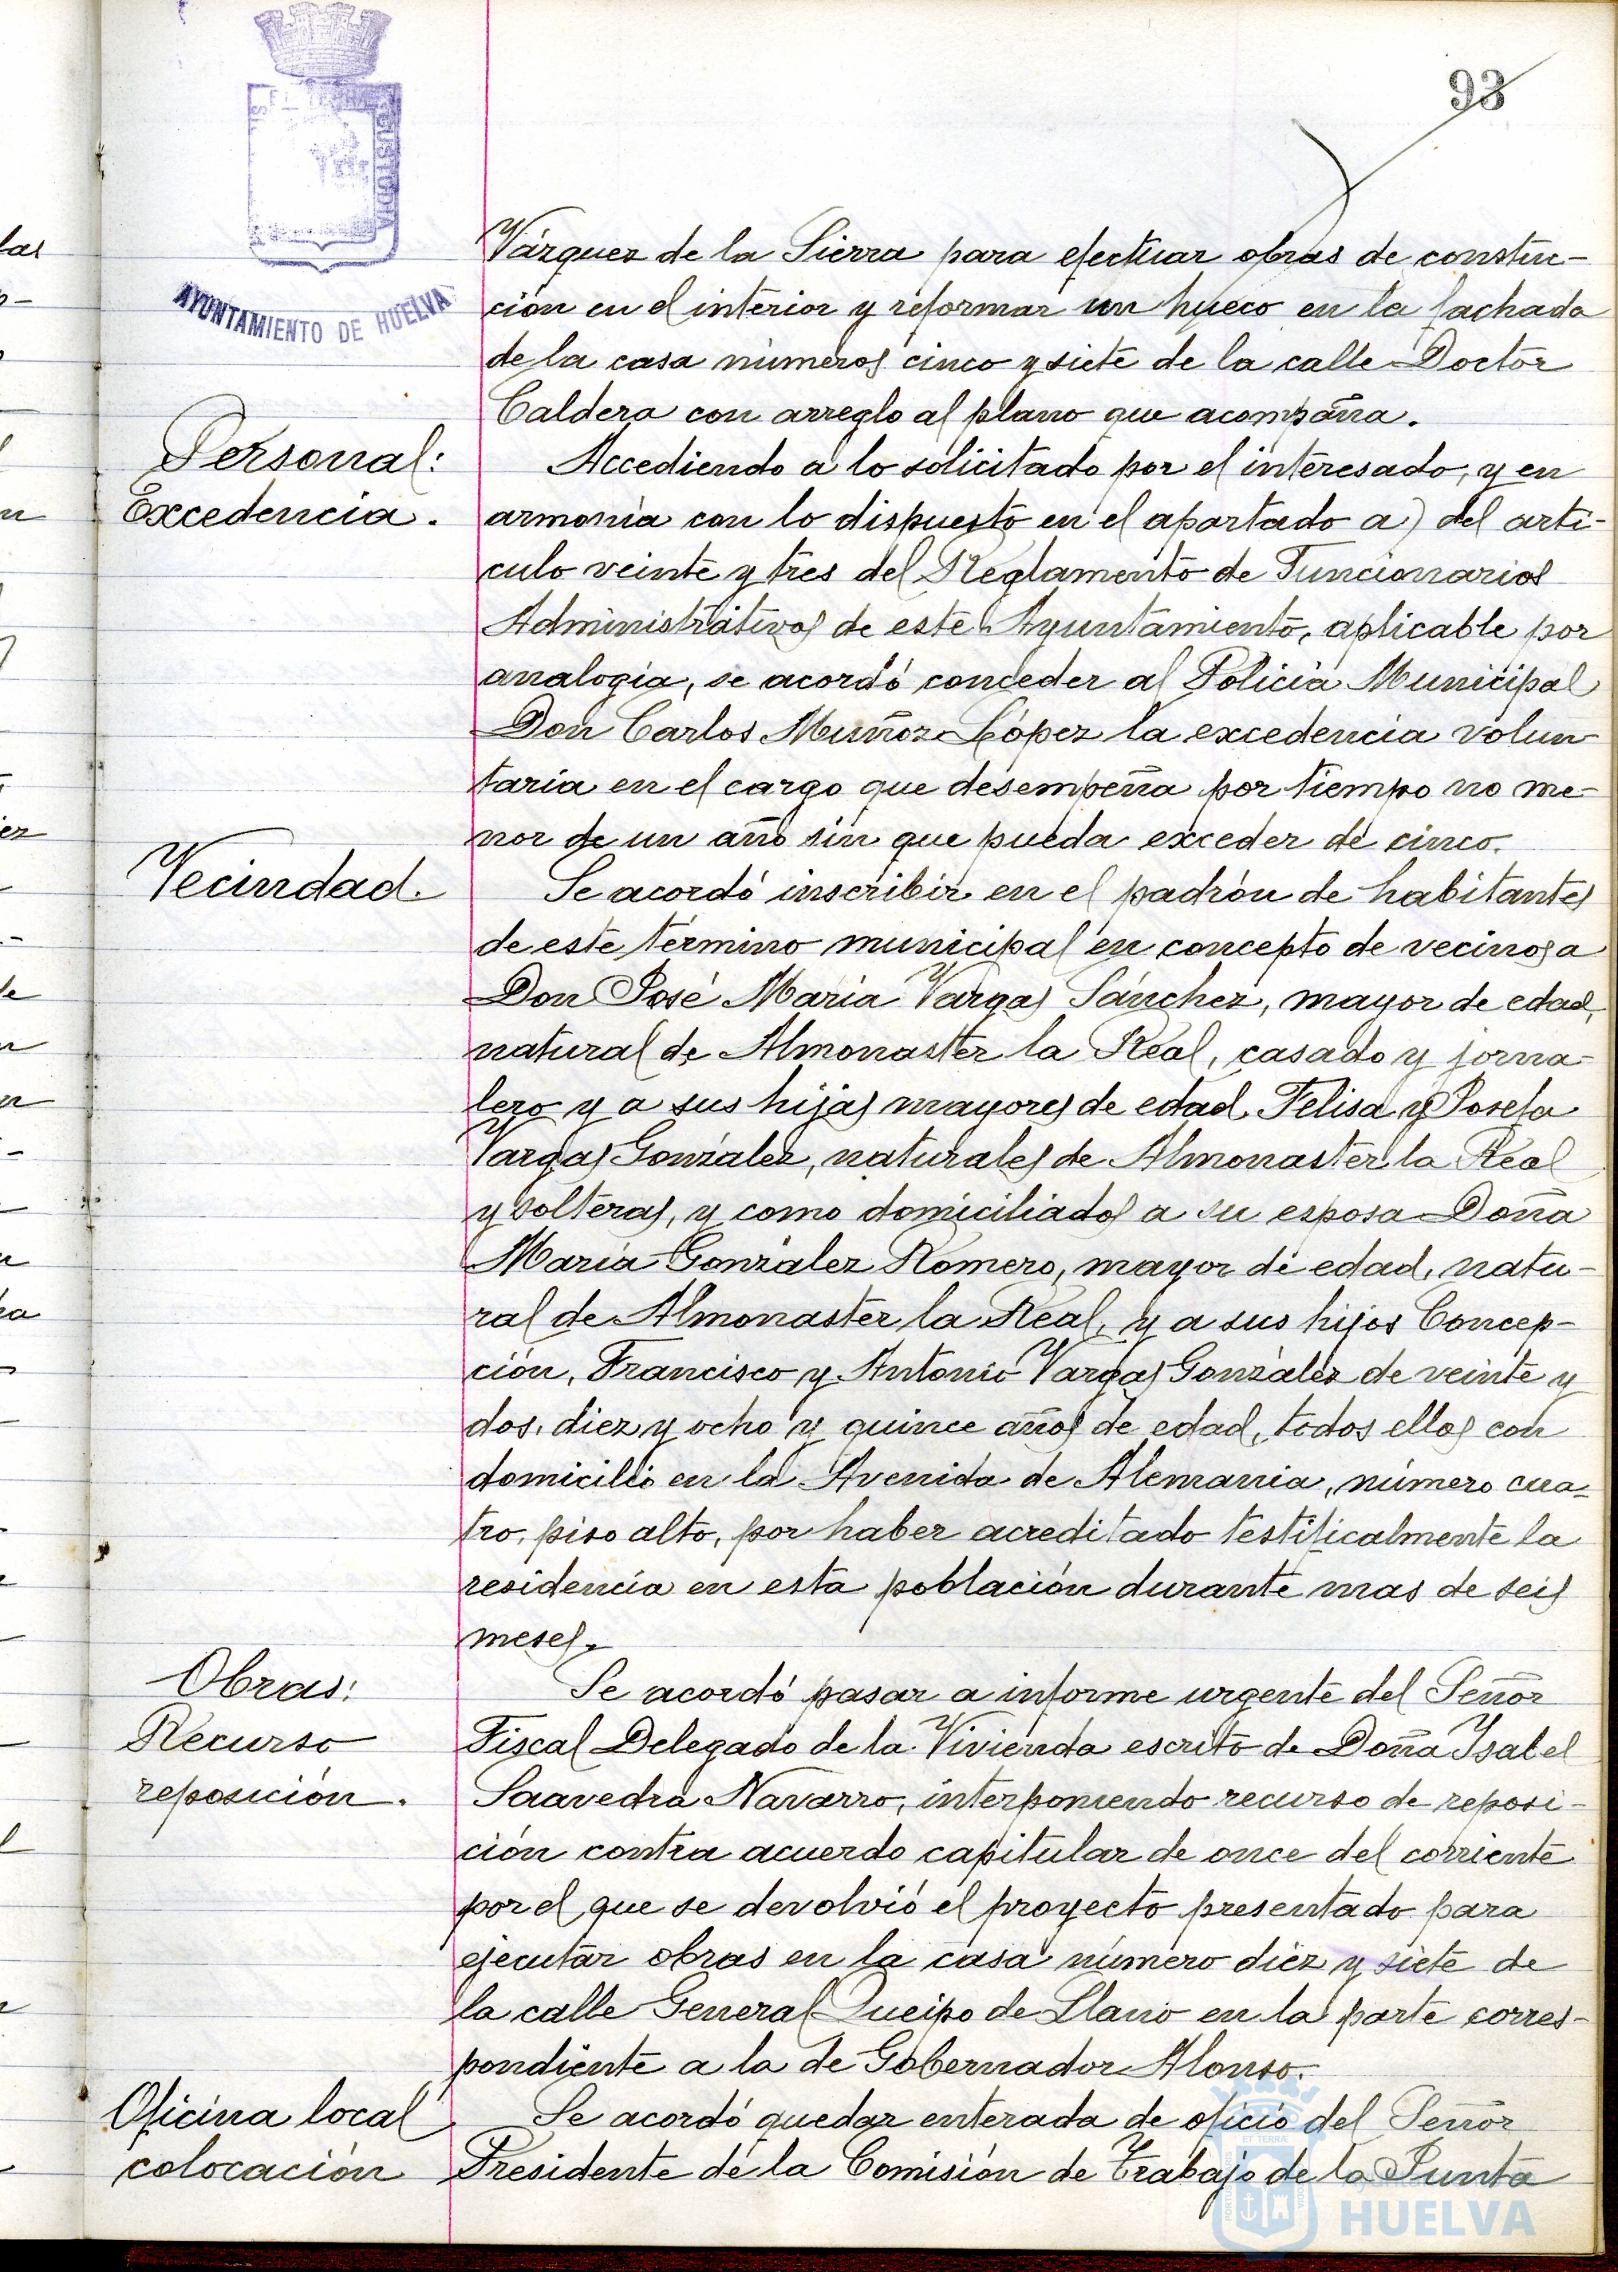 93
AYUNTAMIENTO DE HUELVA
Vázquez de la Sierra para efectuar obras de construc-
ción en el interior y reformar un hueco en la fachada
de la casa números cinco y siete de la calle Doctor
Caldera con arreglo al plano que acompaña.
Personal:
Excedencia.
Accediendo a lo solicitado por el interesado, y en
armonía con lo dispuesto en el apartado a) del artí-
culo veinte y tres del Reglamento de Funcionarios
Administrativos de este Ayuntamiento, aplicable por
analogía, se acordó conceder al Policía Municipal
Don Carlos Muñoz López la excedencia volun-
taria en el cargo que desempeña por tiempo no me-
nor de un año sin que pueda exceder de cinco.
Vecindad.
Se acordó inscribir en el padrón de habitantes
de este término municipal en concepto de vecinos a
Don José María Vargas Sánchez, mayor de edad,
natural de Almonaster la Real, casado y jorna-
lero y a sus hijas mayores de edad, Felisa y Josefa
Vargas González, naturales de Almonaster la Real
y solteras, y como domiciliados a su esposa Doña
María González Romero, mayor de edad, natu-
ral de Almonaster la Real, y a sus hijos Concep-
ción, Francisco y Antonio Vargas González de veinte y
dos, diez y ocho y quince años de edad, todos ellos con
domicilio en la Avenida de Alemania, número cua-
tro, piso alto, por haber acreditado testificalmente la
residencia en esta población durante mas de seis
meses.
Obras:
Recurso
reposición.
Se acordó pasar a informe urgente del Señor
Fiscal Delegado de la Vivienda escrito de Doña Ysabel
Saavedra Navarro, interponiendo recurso de reposi-
ción contra acuerdo capitular de once del corriente
por el que se devolvió el proyecto presentado para
ejecutar obras en la casa número diez y siete de
la calle General Queipo de Llano en la parte corres-
pondiente a la de Gobernador Alonso.
Oficina local
colocación
Se acordó quedar enterada de oficio del Señor
Presidente de la Comisión de Trabajo de la Punta
HUELVA